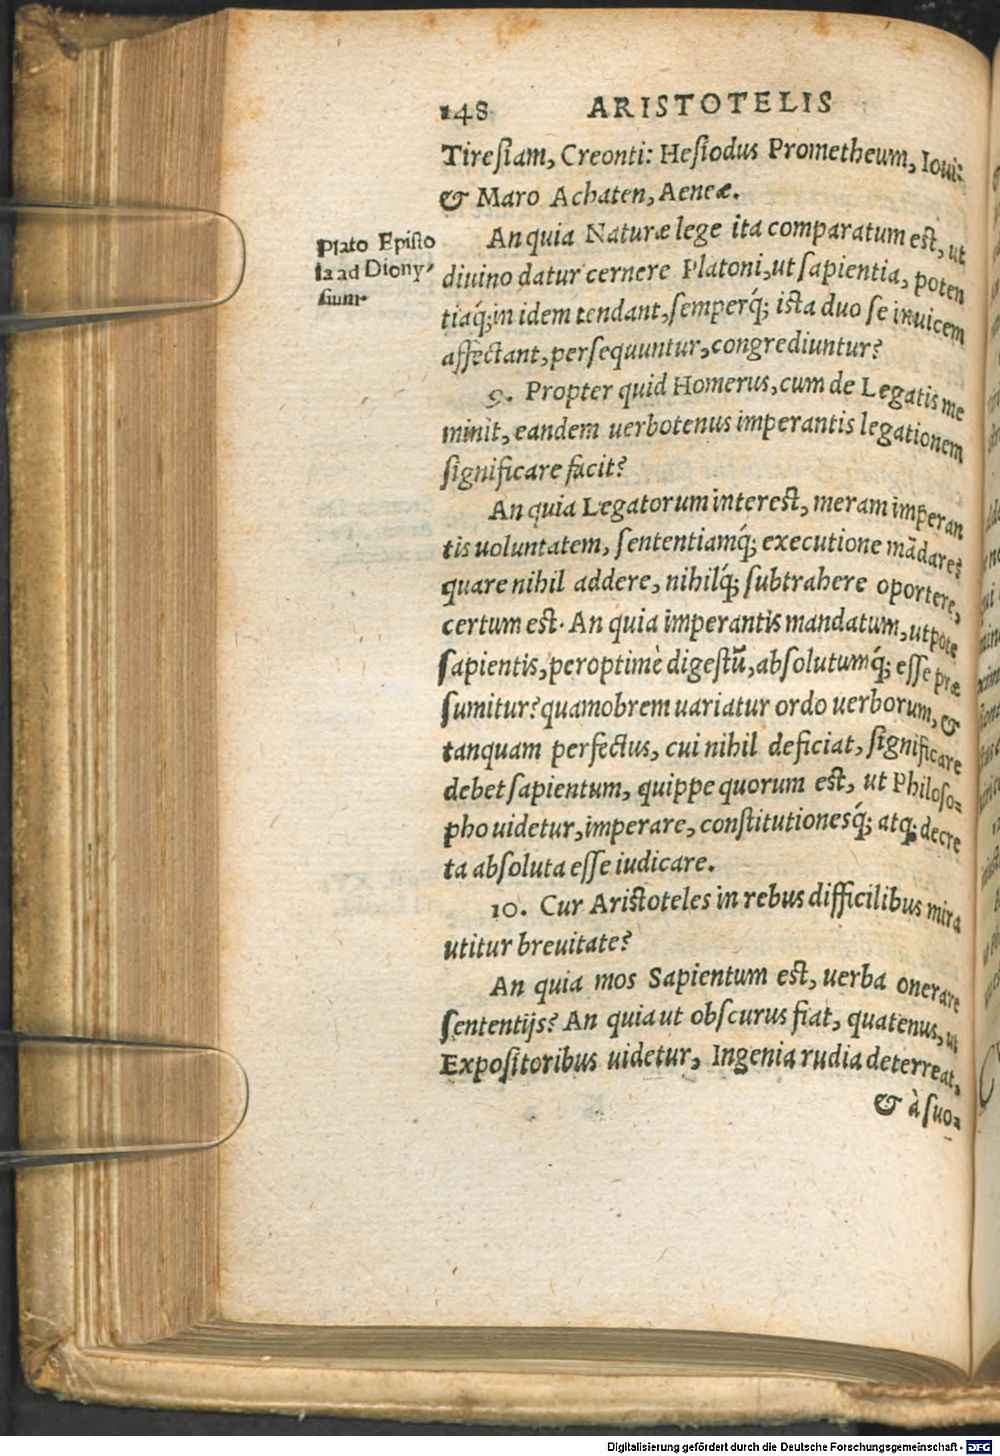 148 ARISTOTELIS
Tiresiam, Creonti: Hesiodus Prometheum, Ioui:
& Maro Achaten, Aeneæ.
Plato Episto
la ad Diony-
sium.
An quia Naturæ lege ita comparatum est, ut
diuino datur cernere Platoni, ut sapientia, poten
tiaq́; in idem tendant, semperq́; ista duo se inuicem
affectant, persequuntur, congrediuntur?
9. Propter quid Homerus, cum de Legatis me
minit, eandem uerbotenus imperantis legationem
significare facit?
An quia Legatorum interest, meram imperan
tis uoluntatem, sententiamq́; executione mādare?
quare nihil addere, nihilq́; subtrahere oportere,
certum est. An quia imperantis mandatum, utpote
sapientis, peroptimè digestũ, absolutumq́; esse præ
sumitur? quamobrem uariatur ordo uerborum, &
tanquam perfectus, cui nihil deficiat, significare
debet sapientum, quippe quorum est, ut Philoso-
pho uidetur, imperare, constitutionesq́; atq; decre
ta absoluta esse iudicare.
10. Cur Aristoteles in rebus difficilibus mira
utitur breuitate?
An quia mos Sapientum est, uerba onerare
sententijs? An quia ut obscurus fiat, quatenus, ut
Expositoribus uidetur, Ingenia rudia deterreat,
& à suo-
Digitalisierung gefördert durch die Deutsche Forschungsgemeinschaft - DFG